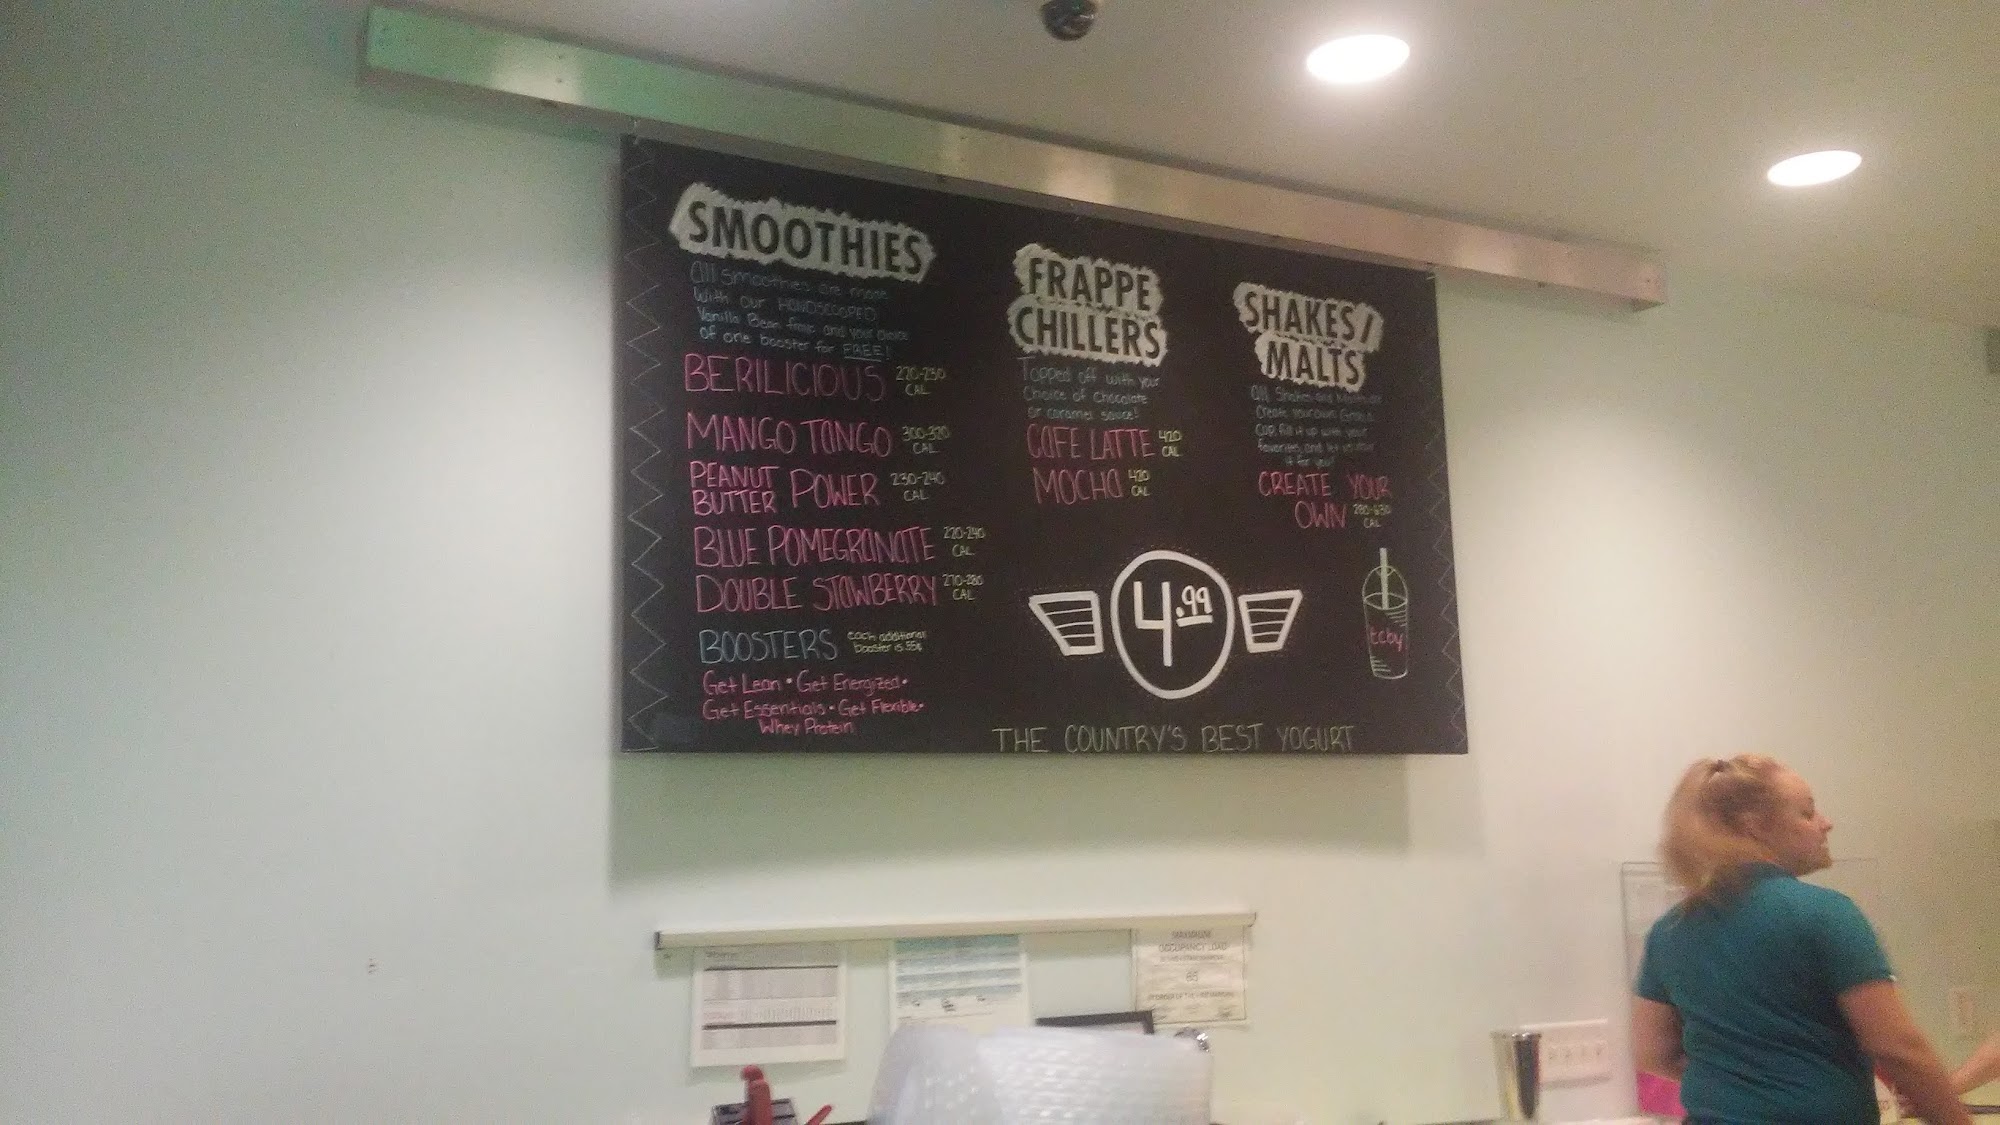 SMOOTHIES
All smoothies are made
with our HANDSCOOPED
Vanilla Bean and your choice
of one booster for FREE!
BERILICIOUS 220-230 CAL
MANGO TANGO 300-320 CAL
PEANUT BUTTER POWER 230-240 CAL
BLUE POMEGRANATE 220-240 CAL
DOUBLE STOWBERRY 270-280 CAL
BOOSTERS each additional booster is 55¢
Get Lean • Get Energized •
Get Essentials • Get Flexible •
Whey Protein
FRAPPE
CHILLERS
Topped off with your
Choice of Chocolate
or caramel sauce!
CAFE LATTE 420 CAL
MOCHA 420 CAL
SHAKES/
MALTS
All Shakes and Malts
Create your own Grab a
Cup, fill it up with your
favorites, and let us
it for you!
CREATE YOUR
OWN 280-630 CAL
4.99
tcby
THE COUNTRY'S BEST YOGURT
MAXIMUM
OCCUPANCY LOAD